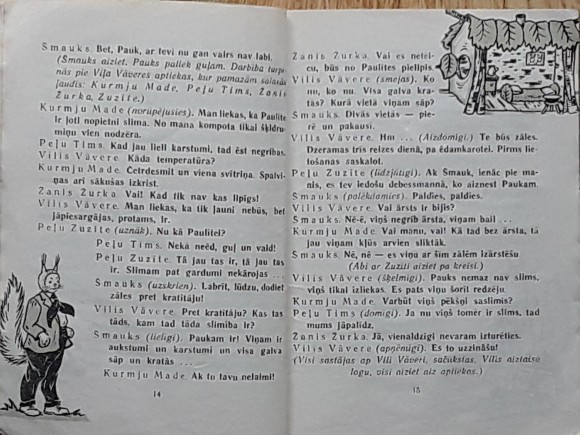 Smauks. Bet, Pauk, ar tevi nu gan vairs nav labi.
(Smauks aiziet. Pauks paliek guļam. Darbība turpi-
nās pie Viļa Vāveres aptiekas, kur pamazām salasās
ļaudis: Kurmju Made, Peļu Tims, Žanis
Žurka, Zuzīte.)
Kurmju Made (norūpējusies). Man liekas, ka Paulīte
ir ļoti nopietni slima. No mana kompota tikai šķidru-
miņu vien nodzēra.
Peļu Tims. Kad jau lieli karstumi, tad ēst negribas.
Vilis Vāvere. Kāda temperatūra?
Kurmju Made. Četrdesmit un viena svītriņa. Spalvi-
ņas arī sākušas izkrist.
Žanis Žurka. Vai! Kad tik nav kas lipīgs!
Vilis Vāvere. Man liekas, ka tik ļauni nebūs, bet
jāpiesargājas, protams, ir.
Peļu Zuzīte (uznāk). Nu kā Paulītei?
Peļu Tims. Nekā neēd, guļ un vaid!
Peļu Zuzīte. Tā jau tas ir, tā jau tas
ir. Slimam pat gardumi nekārojas ...
Smauks (uzskrien). Labrīt, lūdzu, dodiet
zāles pret kratītāju!
Vilis Vāvere. Pret kratītāju? Kas tas
tāds, kam tad tāda slimība ir?
Smauks (lielīgi). Paukam ir! Viņam ir
aukstumi un karstumi un visa galva
sāp un kratās ...
Kurmju Made. Ak tu tavu nelaimi!
14
Žanis Žurka. Vai es netei-
cu, būs no Paulītes pielipis.
Vilis Vāvere (smejas). Ko
nu, ko nu. Visa galva kra-
tās? Kurā vietā viņam sāp?
Smauks. Divās vietās — pie-
rē un pakausī.
Vilis Vāvere. Hm ... (Aizdomīgi.) Te būs zāles.
Dzeramas trīs reizes dienā, pa ēdamkarotei. Pirms lie-
tošanas saskalot.
Peļu Zuzīte (līdzjūtīgi). Ak Smauk, ienāc pie ma-
nis, es tev iedošu debessmannā, ko aiznest Paukam.
Smauks (palēkdamies). Paldies, paldies.
Vilis Vāvere. Vai ārsts ir bijis?
Smauks. Nē-ē, viņš negrib ārsta, viņam bail ...
Kurmju Made. Vai manu, vai! Kā tad bez ārsta, tā
jau viņam kļūs arvien sliktāk.
Smauks. Nē, nē — es viņu ar šīm zālēm izārstēšu.
(Abi ar Zuzīti aiziet pa kreisi.)
Vilis Vāvere (šķelmīgi). Pauks nemaz nav slims,
viņš tikai izliekas. Es pats viņu šorīt redzēju.
Kurmju Made. Varbūt viņš pēkšņi saslimis?
Peļu Tims (domīgi). Ja nu viņš tomēr ir slims, tad
mums jāpalīdz.
Žanis Žurka. Jā, vienaldzīgi nevaram izturēties.
Vilis Vāvere (apņēmīgi). Es to uzzināšu!
(Visi sastājas ap Vili Vāveri, sačukstas, Vilis aiztaisa
logu, visi aiziet aiz aptiekas.)
15